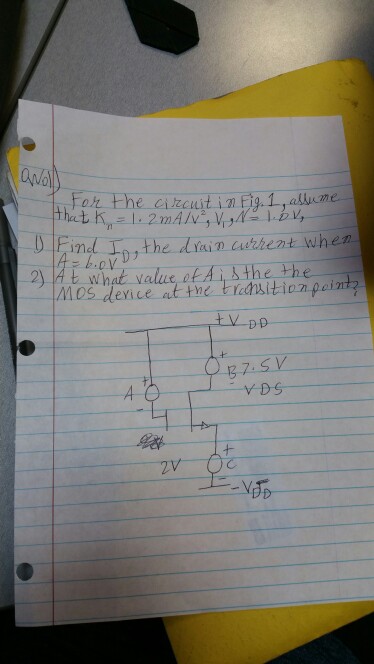 For the circuit in Fig. 1, assume
that Kn = 1.2mA/V², VT,N = 1.6V,
1) Find ID, the drain current when
A = 6.0V
2) At what value of A is the the
MOS device at the transition point?
+VDD
+
B 7.5V
-
VDS
+
A
-
2V
+
C
-
-VDD